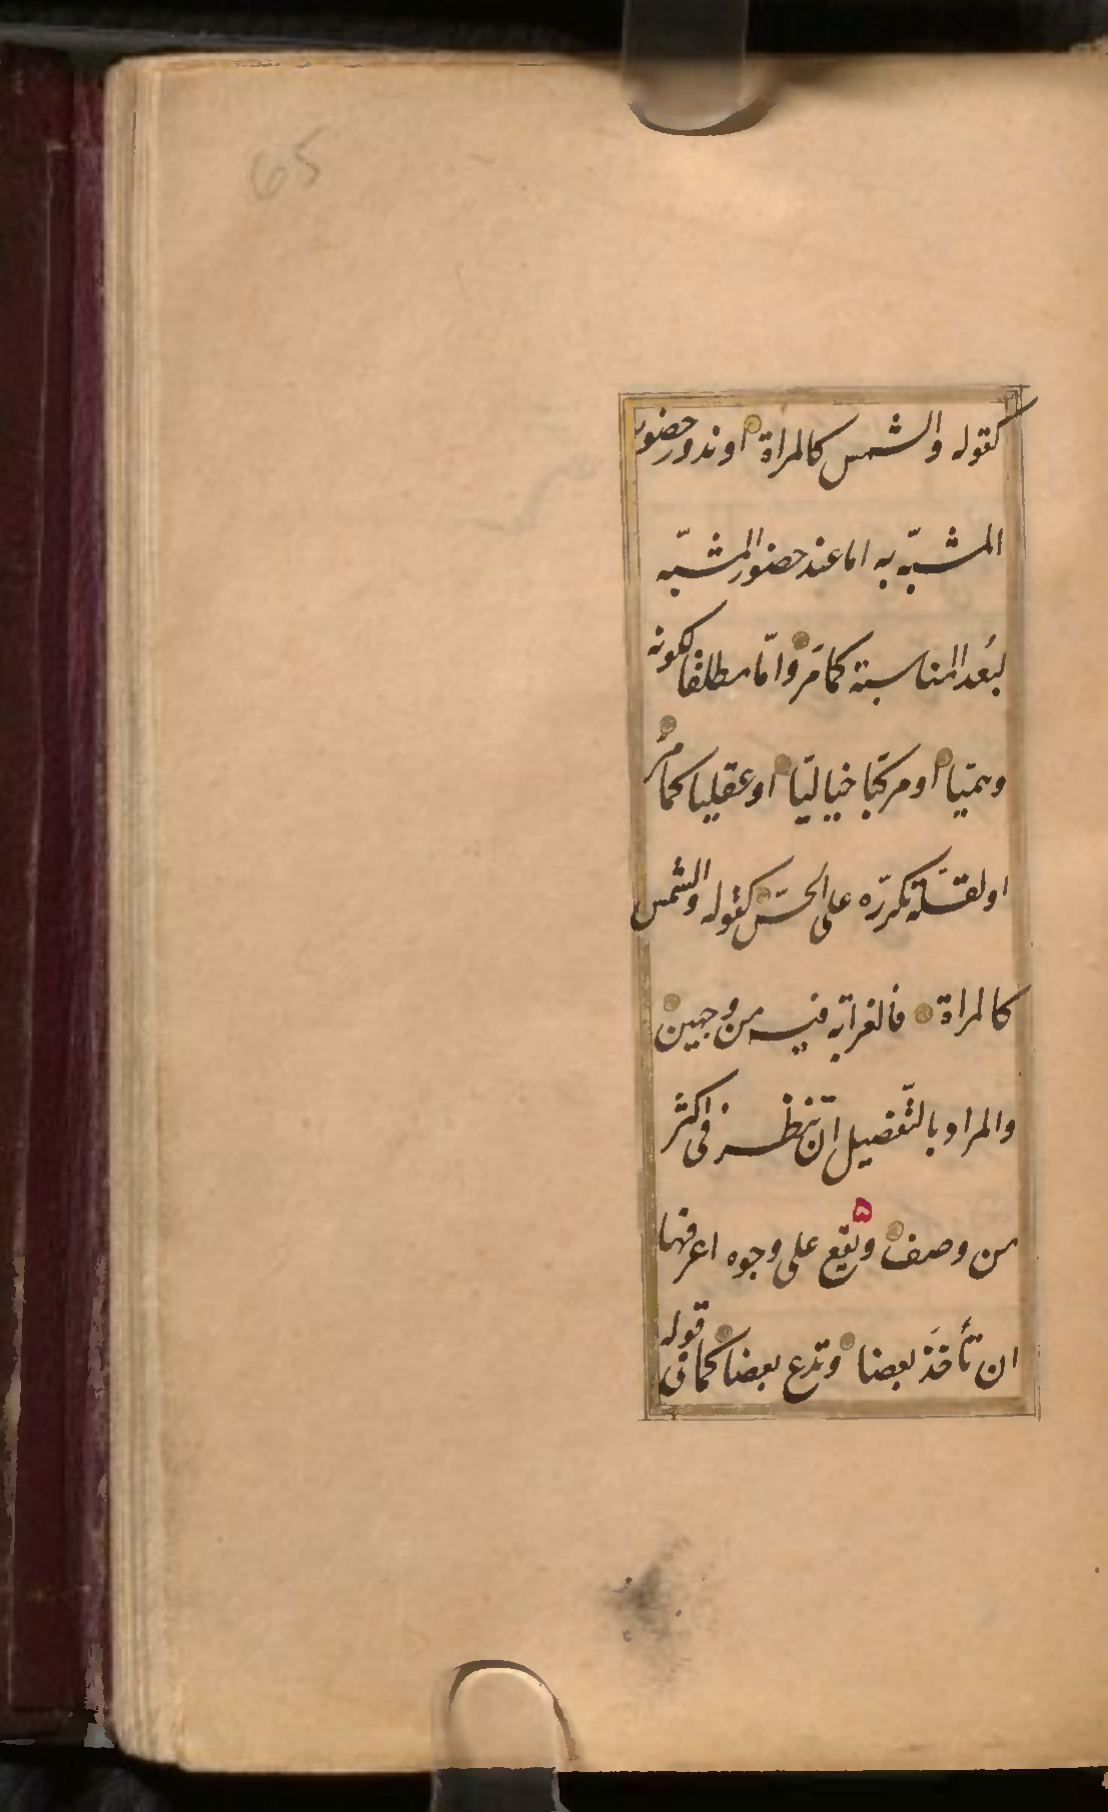 65
كقوله والشمس كالمراة او ندور حضور
المشبّه به اما عند حضور المشبّه
لبُعد المناسبة كما مَرّ وامّا مطلقا لكونه
وهميّا او مركّبا خياليّا او عقليا كما مرّ
او لقلّة تكرّره على الحسّ كقوله والشمس
كالمراة فالغرابة فيه من وجهين
والمراد بالتّفضيل ان ينظر فى اكثر
من وصف ويقع على وجوه اعرفها
ان تأخذ بعضا وتدع بعضا كما فى قوله